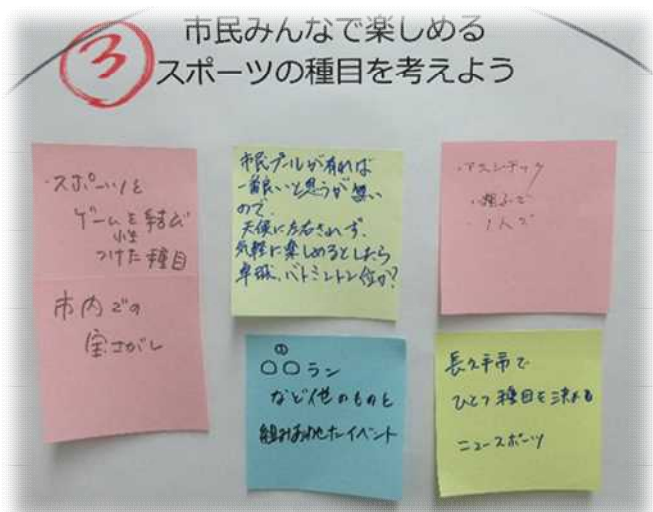 ③
市民みんなで楽しめる
スポーツの種目を考えよう
・スポーツと
ゲーム性を結び
つけた種目
市内での
宝さがし
市民プールが有れば
一番良いと思うが無い
ので、
天候に左右されず、
気軽に楽しめるとしたら
卓球、バトミントン位か?
・アスレチック
・親子で
・1人で
○○ラン
など他のものと
組みあわせたイベント
長久手市で
ひとつ種目を決める
ニュースポーツ